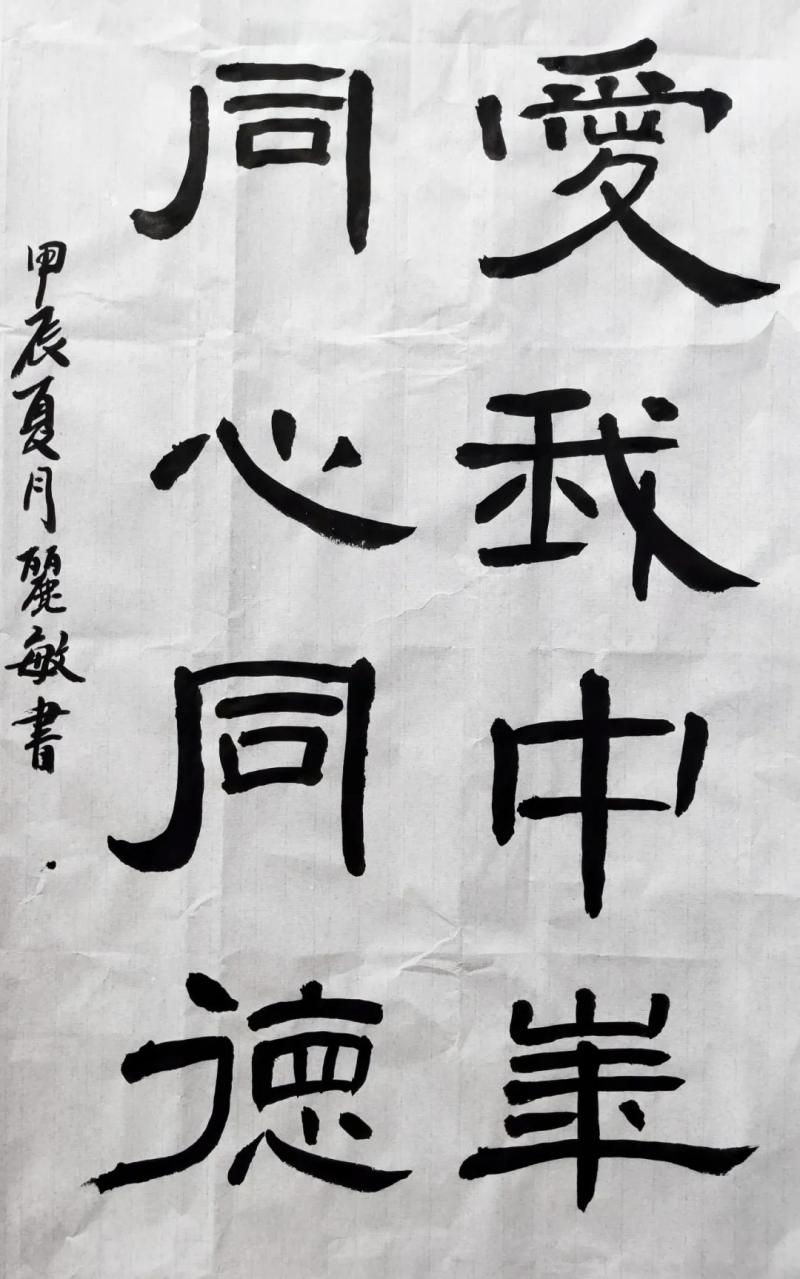 愛我中華
同心同德
甲辰夏月麗敏書